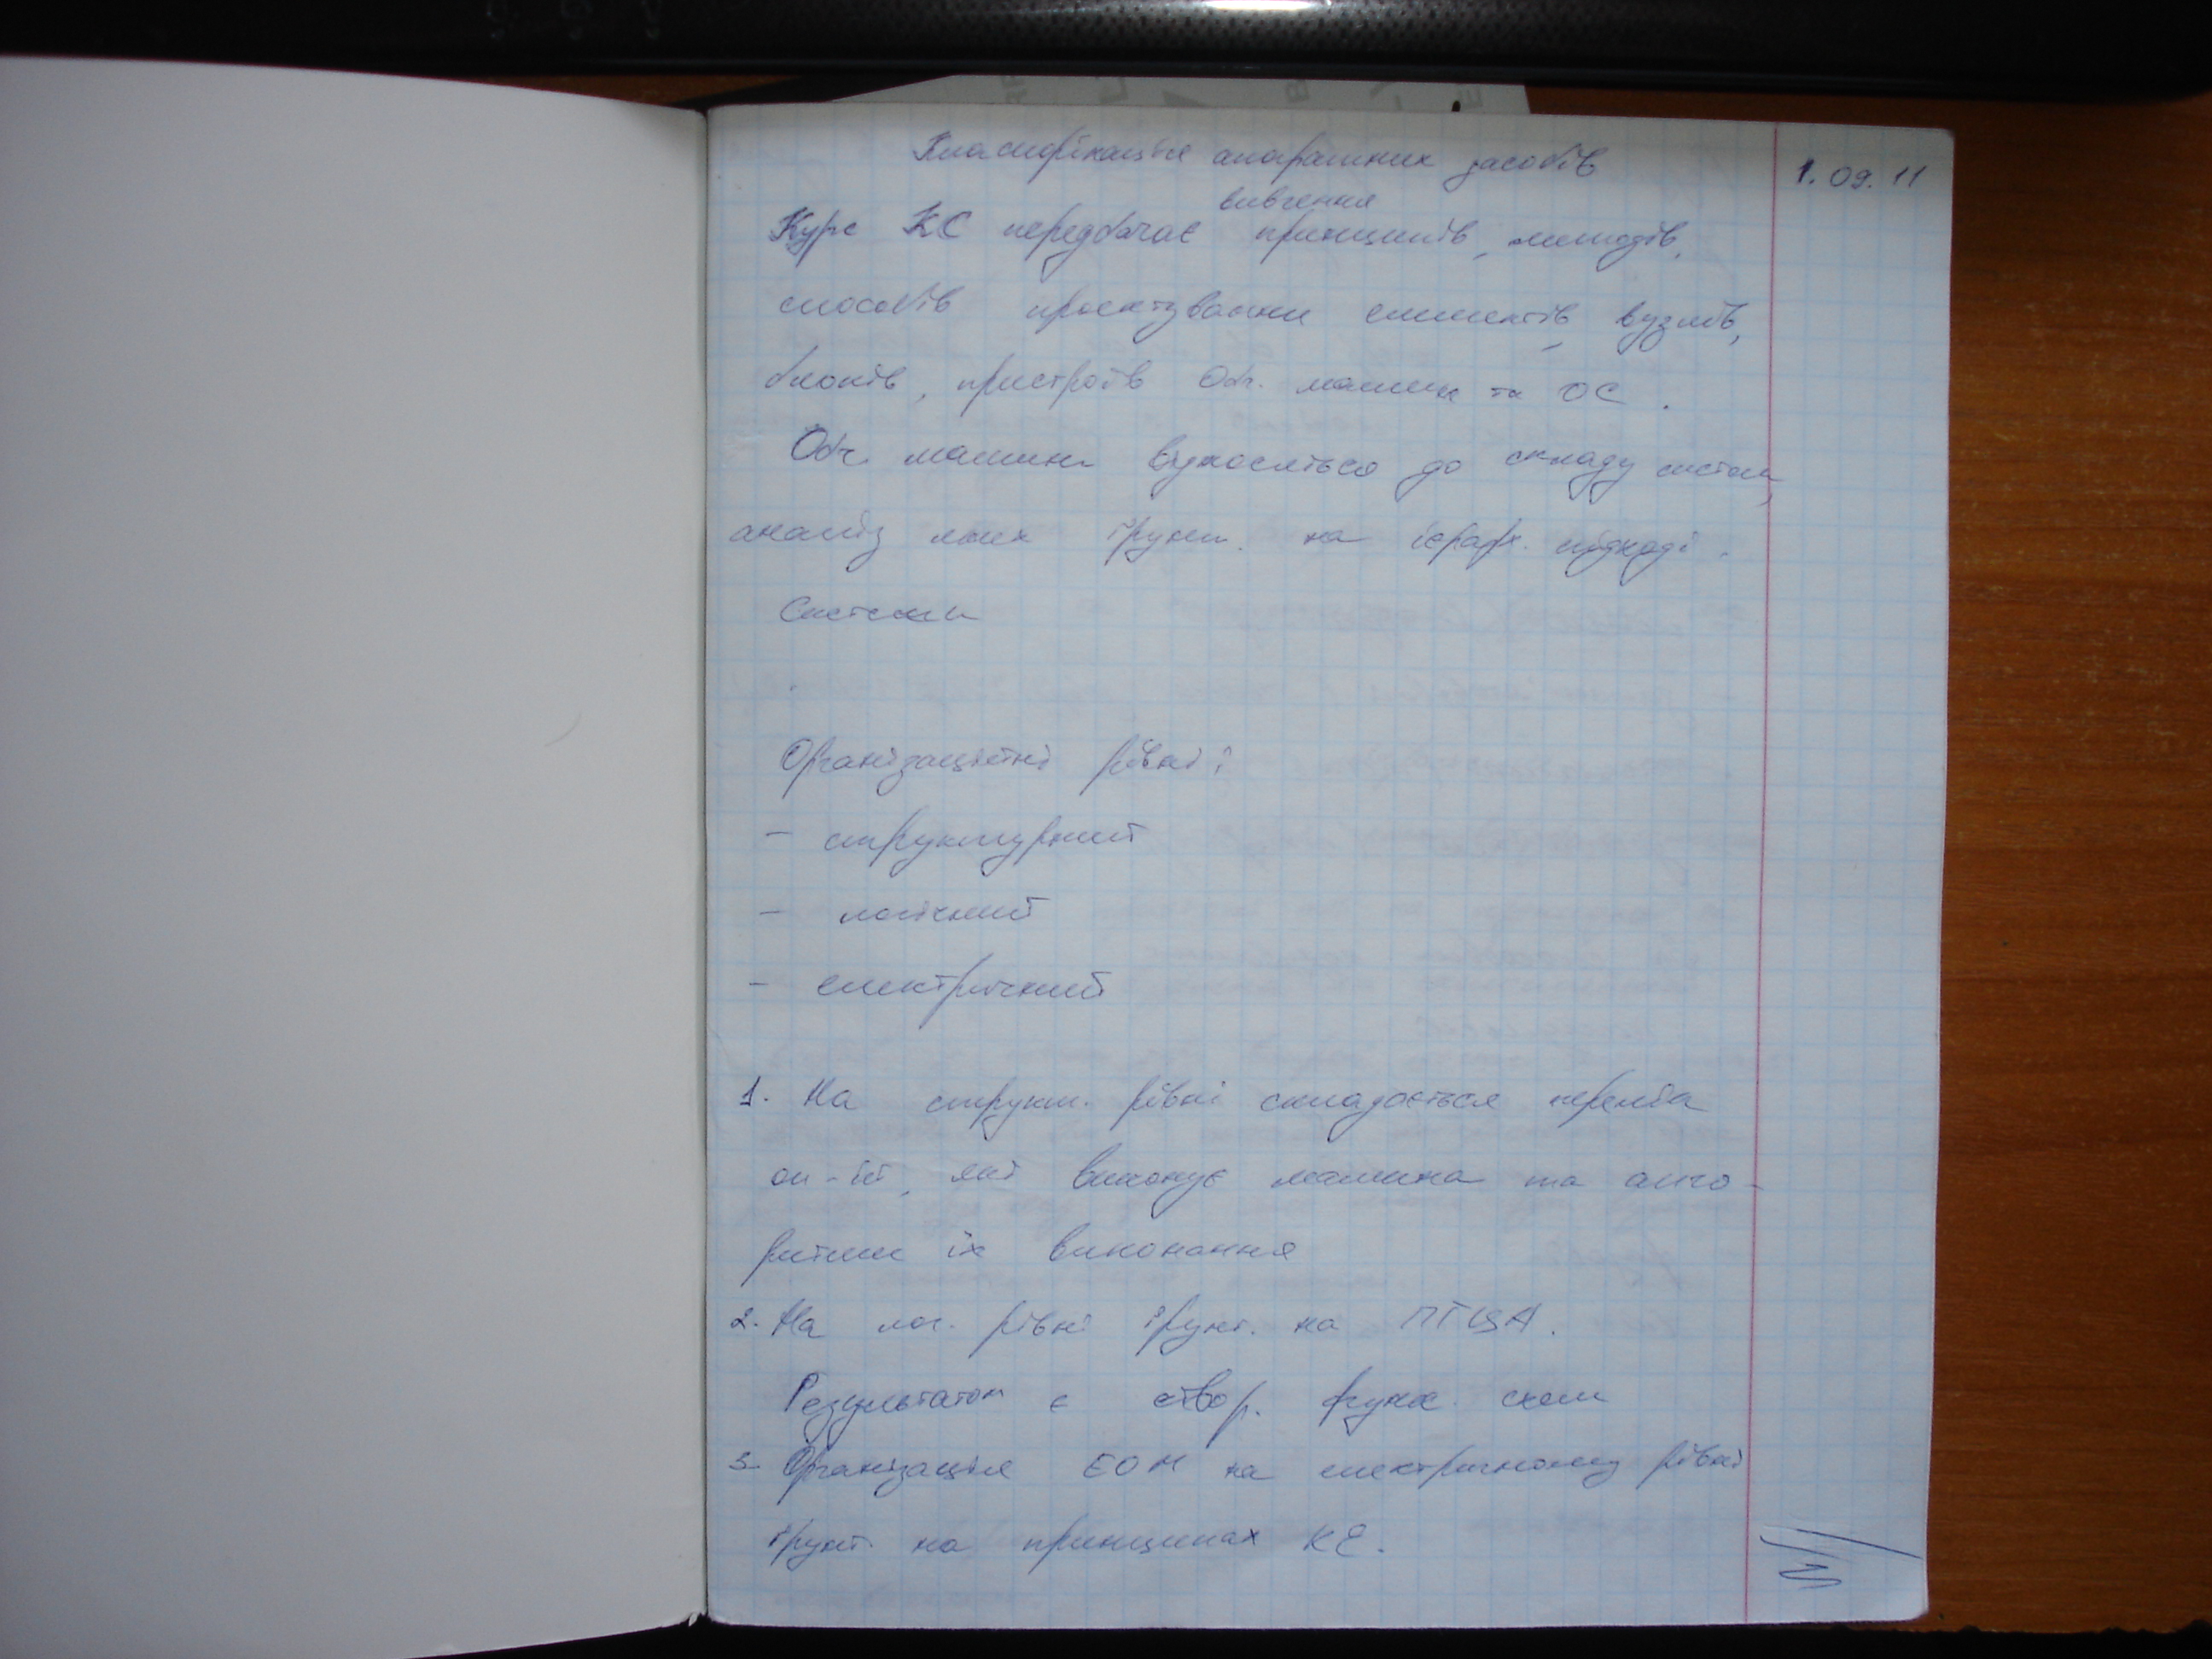 Класифікація апаратних засобів
1.09.11
вивчення
Курс КС передбачає принципів, методів,
способів проектування елементів, вузлів,
блоків, пристроїв Обч. машин та ОС.
Обч. машини відносяться до складу систем,
аналіз яких ґрунт. на ієрарх. підході.
Системи
Організаційні рівні:
- структурний
- логічний
- електричний
1. На структ. рівні складається перелік
оп-ій, які виконує машина та алго-
ритми їх виконання
2. На лог. рівні ґрунт. на ПТЦА.
Результатом є створ. функ. схем
3. Організація ЕОМ на електричному рівні
ґрунт. на принципах КЕ.